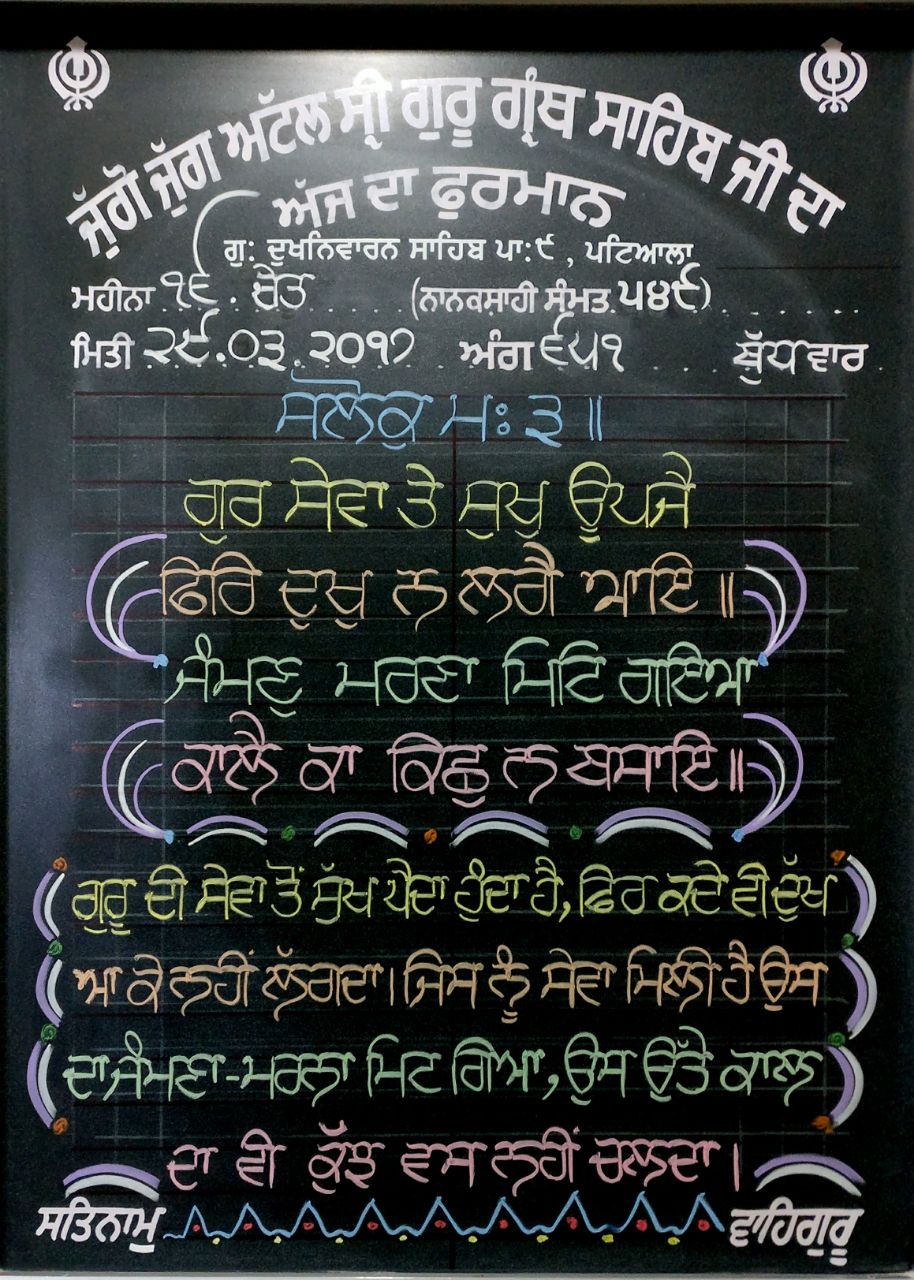 ਜੁੱਗੋ ਜੁੱਗ ਅੱਟਲ ਸ੍ਰੀ ਗੁਰੂ ਗ੍ਰੰਥ ਸਾਹਿਬ ਜੀ ਦਾ
ਅੱਜ ਦਾ ਫੁਰਮਾਨ
ਗੁ: ਦੁਖਨਿਵਾਰਨ ਸਾਹਿਬ ਪਾ:੯, ਪਟਿਆਲਾ
ਮਹੀਨਾ ੧੬. ਚੇਤ (ਨਾਨਕਸਾਹੀ ਸੰਮਤ ੫੪੯)
ਮਿਤੀ ੨੯.੦੩.੨੦੧੭ ਅੰਗ ੬੫੧ ਬੁੱਧਵਾਰ
ਸਲੋਕੁ ਮਃ ੩॥
ਗੁਰ ਸੇਵਾ ਤੇ ਸੁਖੁ ਊਪਜੈ
ਫਿਰਿ ਦੁਖੁ ਨ ਲਗੈ ਆਇ॥
ਜੰਮਣੁ ਮਰਣਾ ਮਿਟਿ ਗਇਆ
ਕਾਲੈ ਕਾ ਕਿਛੁ ਨ ਬਸਾਇ॥
ਗੁਰੂ ਦੀ ਸੇਵਾ ਤੋਂ ਸੁੱਖ ਪੈਦਾ ਹੁੰਦਾ ਹੈ, ਫਿਰ ਕਦੇ ਵੀ ਦੁੱਖ
ਆ ਕੇ ਨਹੀਂ ਲੱਗਦਾ। ਜਿਸ ਨੂੰ ਸੇਵਾ ਮਿਲੀ ਹੈ ਉਸ
ਦਾ ਜੰਮਣਾ-ਮਰਨਾ ਮਿਟ ਗਿਆ, ਉਸ ਉੱਤੇ ਕਾਲ
ਦਾ ਵੀ ਕੁੱਝ ਵਸ ਨਹੀਂ ਚਲਦਾ।
ਸਤਿਨਾਮੁ ਵਾਹਿਗੁਰੂ